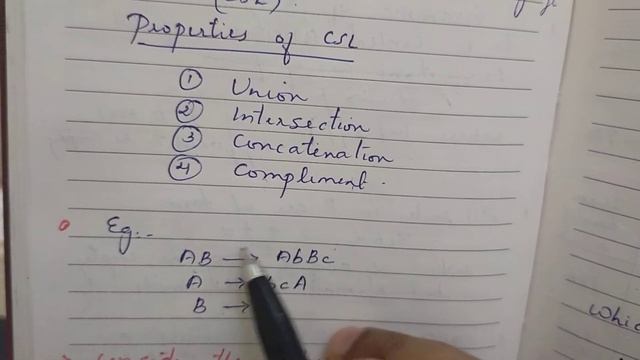 Properties of CSL
① Union
② Intersection
③ Concatenation
④ Compliment.
Eg:-
AB → AbBc
A → bcA
B →